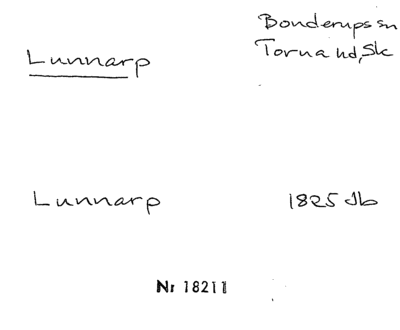 Lunnarp
Bonderups sn
Torna hd, Sk
Lunnarp
1825 Jb
Nr 18211